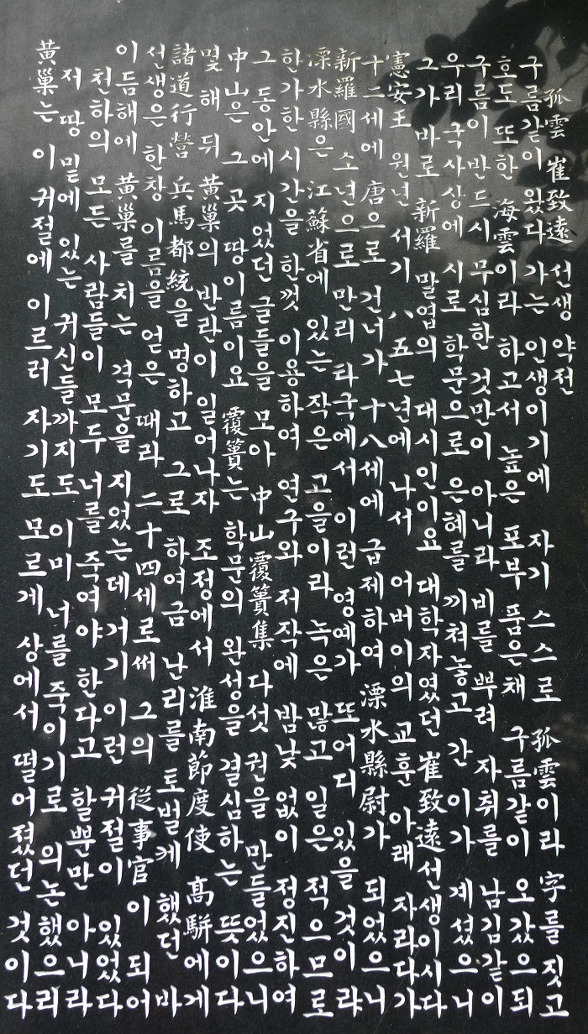 孤雲 崔致遠 선생 약전
구름같이 왔다 가는 인생이기에 자기 스스로 孤雲이라 字를 짓고
호도 또한 海雲이라 하고서 높은 포부 품은채 구름같이 오갔으되
구름이 반드시 무심한 것만이 아니라 비를 뿌려 자취를 남김같이
우리 국사상에 시로 학문으로 은혜를 끼쳐놓고 간 이가 계셨으니
그가 바로 新羅 말엽의 대시인이요 대학자였던 崔致遠선생이시다
憲安王 원년 서기 八五七년에 나서 어버이의 교훈 아래 자라다가
十二세에 唐으로 건너가 十八세에 급제하여 溧水縣尉가 되었으니
新羅國 소년으로 만리 타국에서 이런 영예가 또어디 있을 것이랴
溧水縣은 江蘇省에 있는 작은 고을이라 녹은 많고 일은 적으므로
한가한 시간을 한껏 이용하여 연구와 저작에 밤낮 없이 정진하여
그 동안에 지었던 글들을 모아 中山覆簣集 다섯 권을 만들었으니
中山은 그 곳 땅이름이요 覆簣는 학문의 완성을 결심하는 뜻이다
몇 해 뒤 黃巢의 반란이 일어나자 조정에서 淮南節度使 高騈에게
諸道行營 兵馬都統을 명하고 그로 하여금 난리를 토벌케 했던 바
선생은 한창 이름을 얻은 때라 二十四세로써 그의 從事官이 되어
이듬해에 黃巢를 치는 격문을 지었는데 거기 이런 귀절이 있었다
천하의 모든 사람들이 모두 너를 죽여야 한다고 할뿐만 아니라
저 땅 밑에 있는 귀신들까지도 이미 너를 죽이기로 의논했으리
黃巢는 이 귀절에 이르러 자기도 모르게 상에서 떨어졌던 것이다